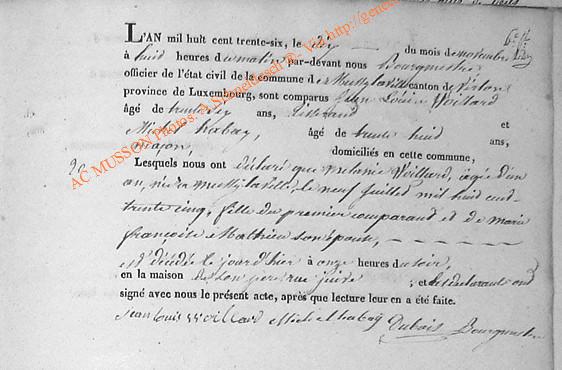 L'AN mil huit cent trente-six, le dix du mois de novembre
à huit heures du matin par-devant nous Bourgmestre
officier de l'état civil de la commune de Mussy la ville canton de Virton
province de Luxembourg, sont comparus Jean Louis Woillard
âgé de trente six ans, Tisserand et
Michel habay, âgé de trente huit ans,
maçon, domiciliés en cette commune,
Lesquels nous ont déclaré que melanie Woillard, âgée d'un
an, née à mussy la ville, le neuf juillet mil huit cent
trente cinq, fille du premier comparant et de marie
françoise Mathieu son épouse,
est décédée le jour d'hier à onze heures du soir,
en la maison de son pere rue ; et les déclarants ont
signé avec nous le présent acte, après que lecture leur en a été faite.
Jean louis Woillard Michel habay Dubois Bourgmestre
AC MUSSON Photos: A. Schneidesch © - Via http://genea